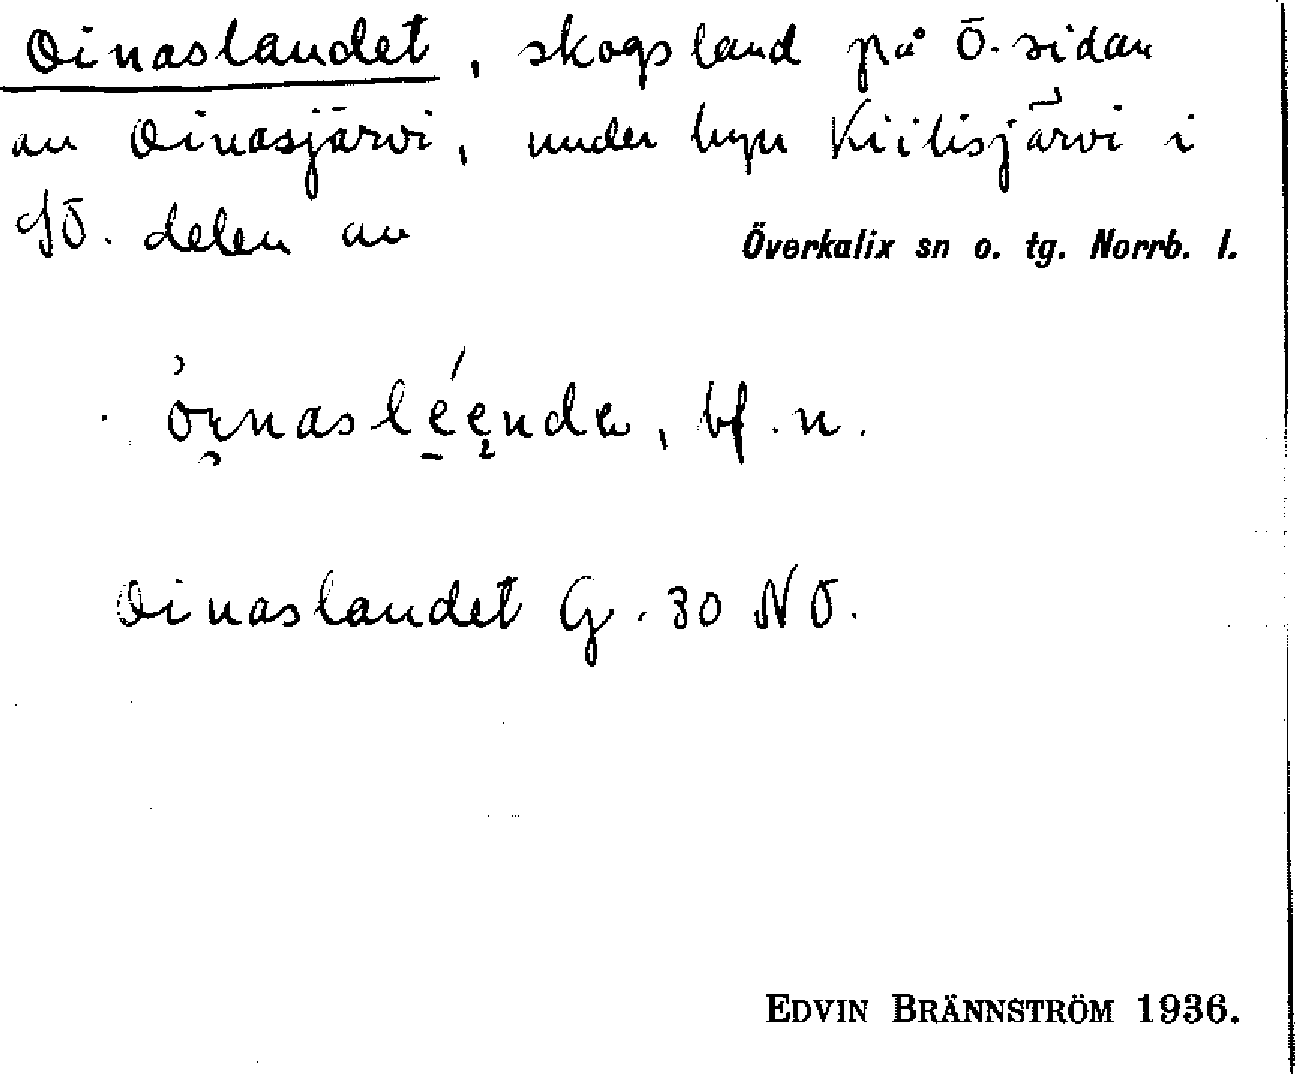 Oinaslandet, skogsland på Ö. sidan
av Oinasjärvi, under byn Kiilisjärvi i
SÖ. delen av Överkalix sn o. tg. Norrb. l.
bf. n.
Oinaslandet G. 30 NÖ.
EDVIN BRÄNNSTRÖM 1936.